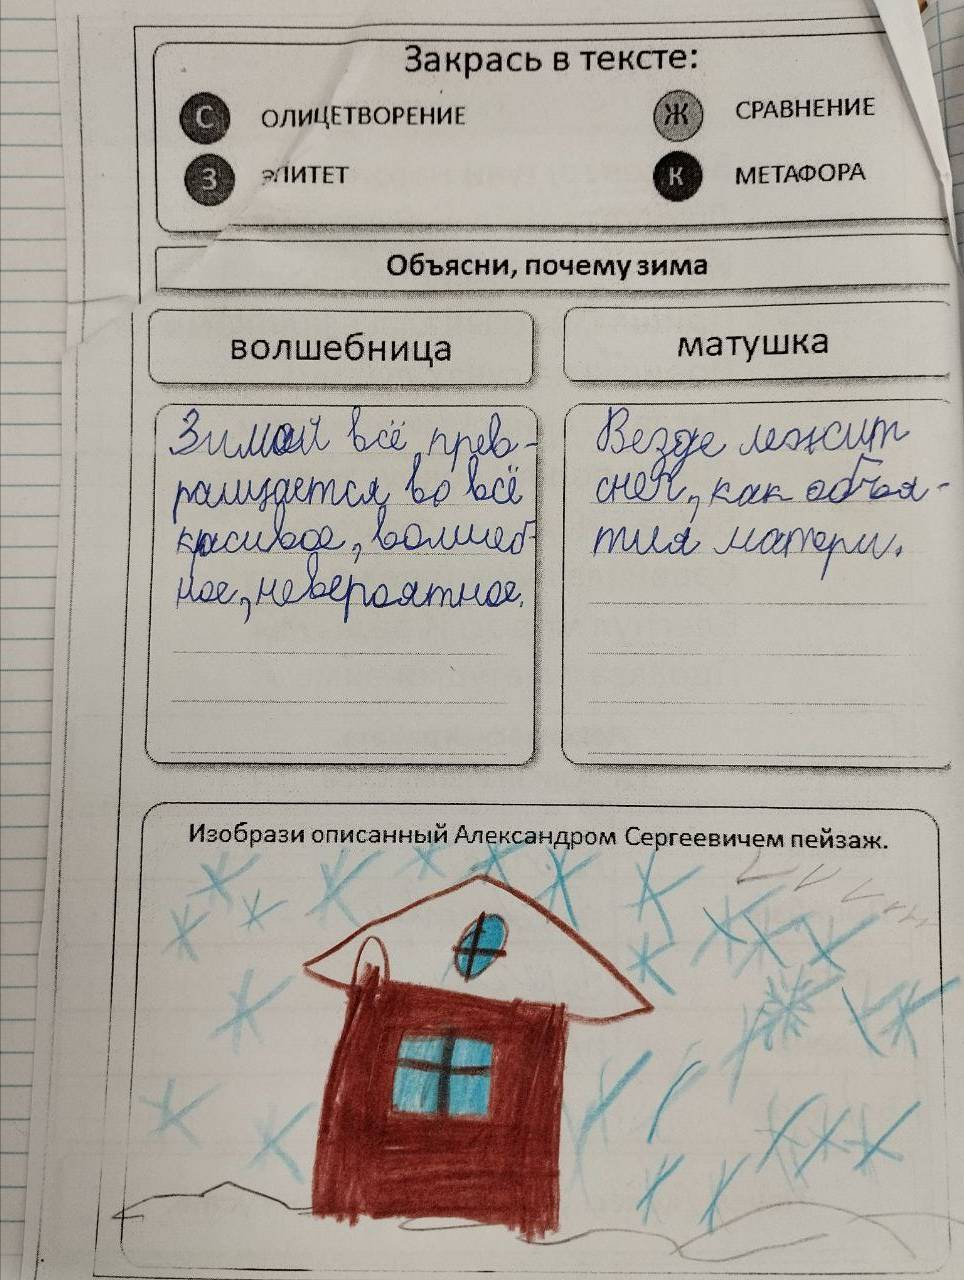 Закрась в тексте:
С ОЛИЦЕТВОРЕНИЕ Ж СРАВНЕНИЕ
З ЭПИТЕТ К МЕТАФОРА
Объясни, почему зима
волшебница
Зимой всё прев-
ращается во всё
красивое, волшеб-
ное, невероятное.
матушка
Везде лежит
снег, как объя-
тия матери.
Изобрази описанный Александром Сергеевичем пейзаж.